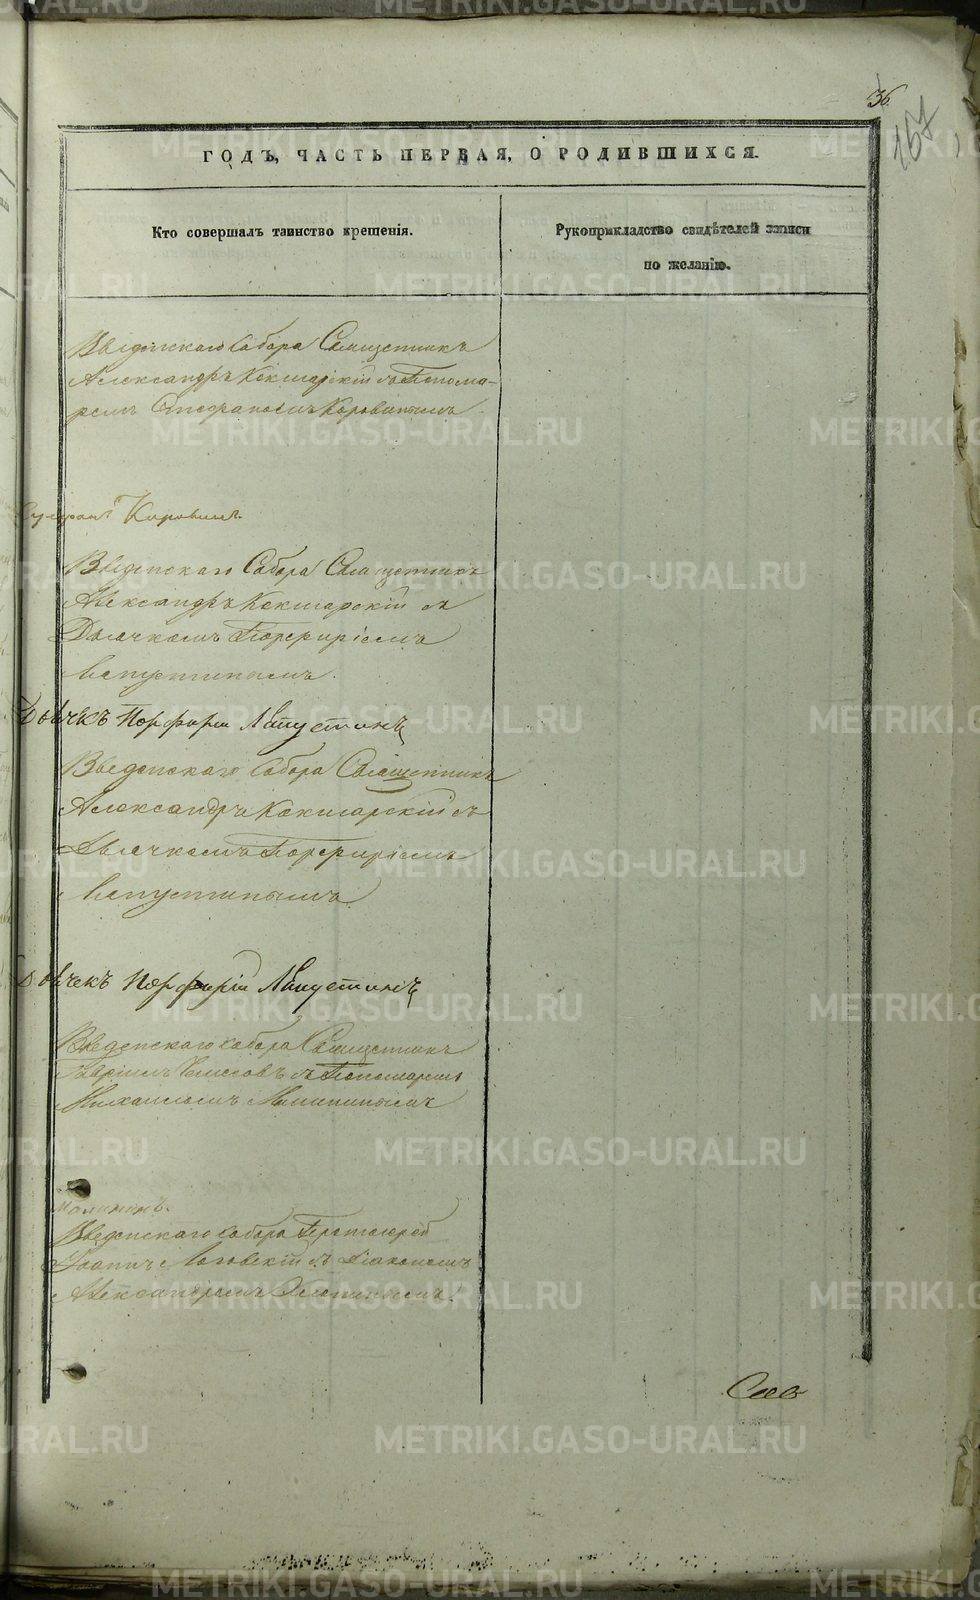 36
167
ГОДЪ, ЧАСТЬ ПЕРВАЯ, О РОДИВШИХСЯ.
Кто совершалъ таинство крещенія.
Рукоприкладство свидѣтелей записи
по желанію.
Введенскаго Собора Священникъ
Александръ Кокшарскій съ Понома-
ремъ Стефаномъ Коровинымъ.
Коровинъ.
Введенскаго Собора Священникъ
Александръ Кокшарскій съ
Дьячкомъ Порфиріемъ
Капустинымъ.
Дьячекъ Порфирій Капустинъ
Введенскаго Собора Священникъ
Александръ Кокшарскій съ
Дьячкомъ Порфиріемъ
Капустинымъ.
Дьячекъ Порфирій Капустинъ
Введенскаго Собора Священникъ
съ Пономаремъ
Михаиломъ
Введенскаго Собора Протоіерей
Іоаннъ съ Діакономъ
Александромъ
METRIKI.GASO-URAL.RU